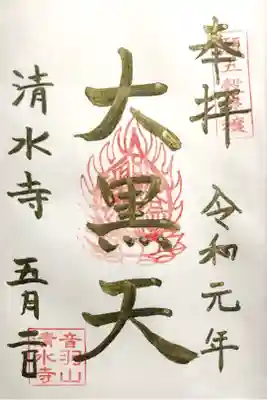 奉拝
令和元年
大黒天
清水寺
五月二日
音羽山
清水寺